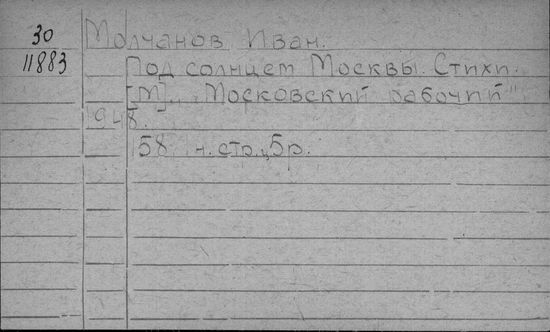 30
11883
Молчанов Иван.
Под солнцем Москвы. Стихи.
[М]. „Московский рабочий"
948.
58 н. стр. ц 5р.